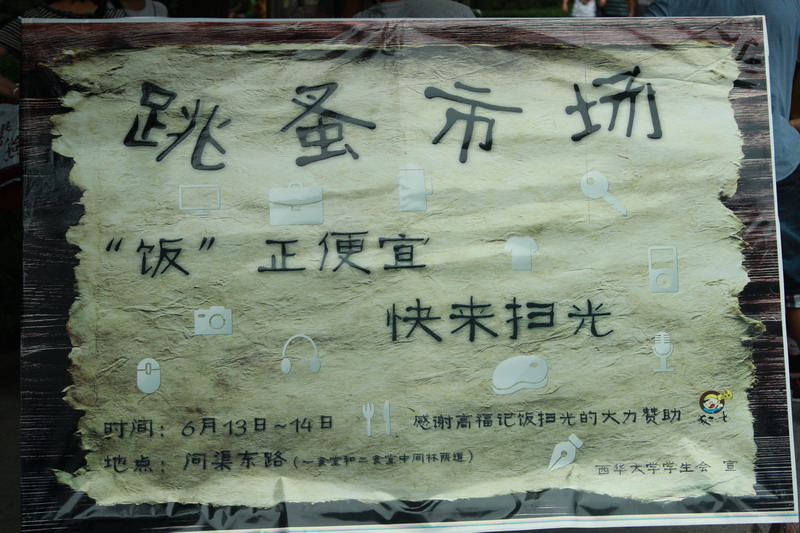 跳蚤市场
“饭”正便宜
快来扫光
时间：6月13日~14日
感谢高福记饭扫光的大力赞助
地点：问渠东路(一食堂和二食堂中间林荫道)
西华大学学生会 宣